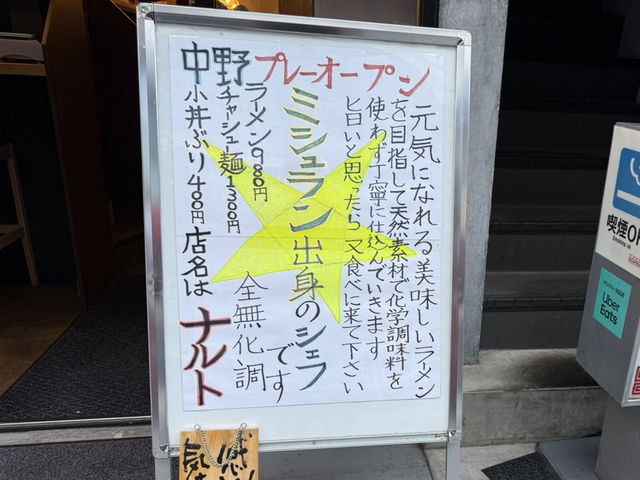 中野プレーオープン
元気になれる美味しいラーメン
を目指して天然素材で化学調味料を
使わず丁寧に仕込んでいきます
旨いと思ったら又食べに来て下さい
ミシュラン出身のシェフ
です
全無化調
ラーメン980円
チャシュー麺1300円
小丼ぶり400円
店名は
ナルト
喫煙OK
Smoking ok
Uber
Eats